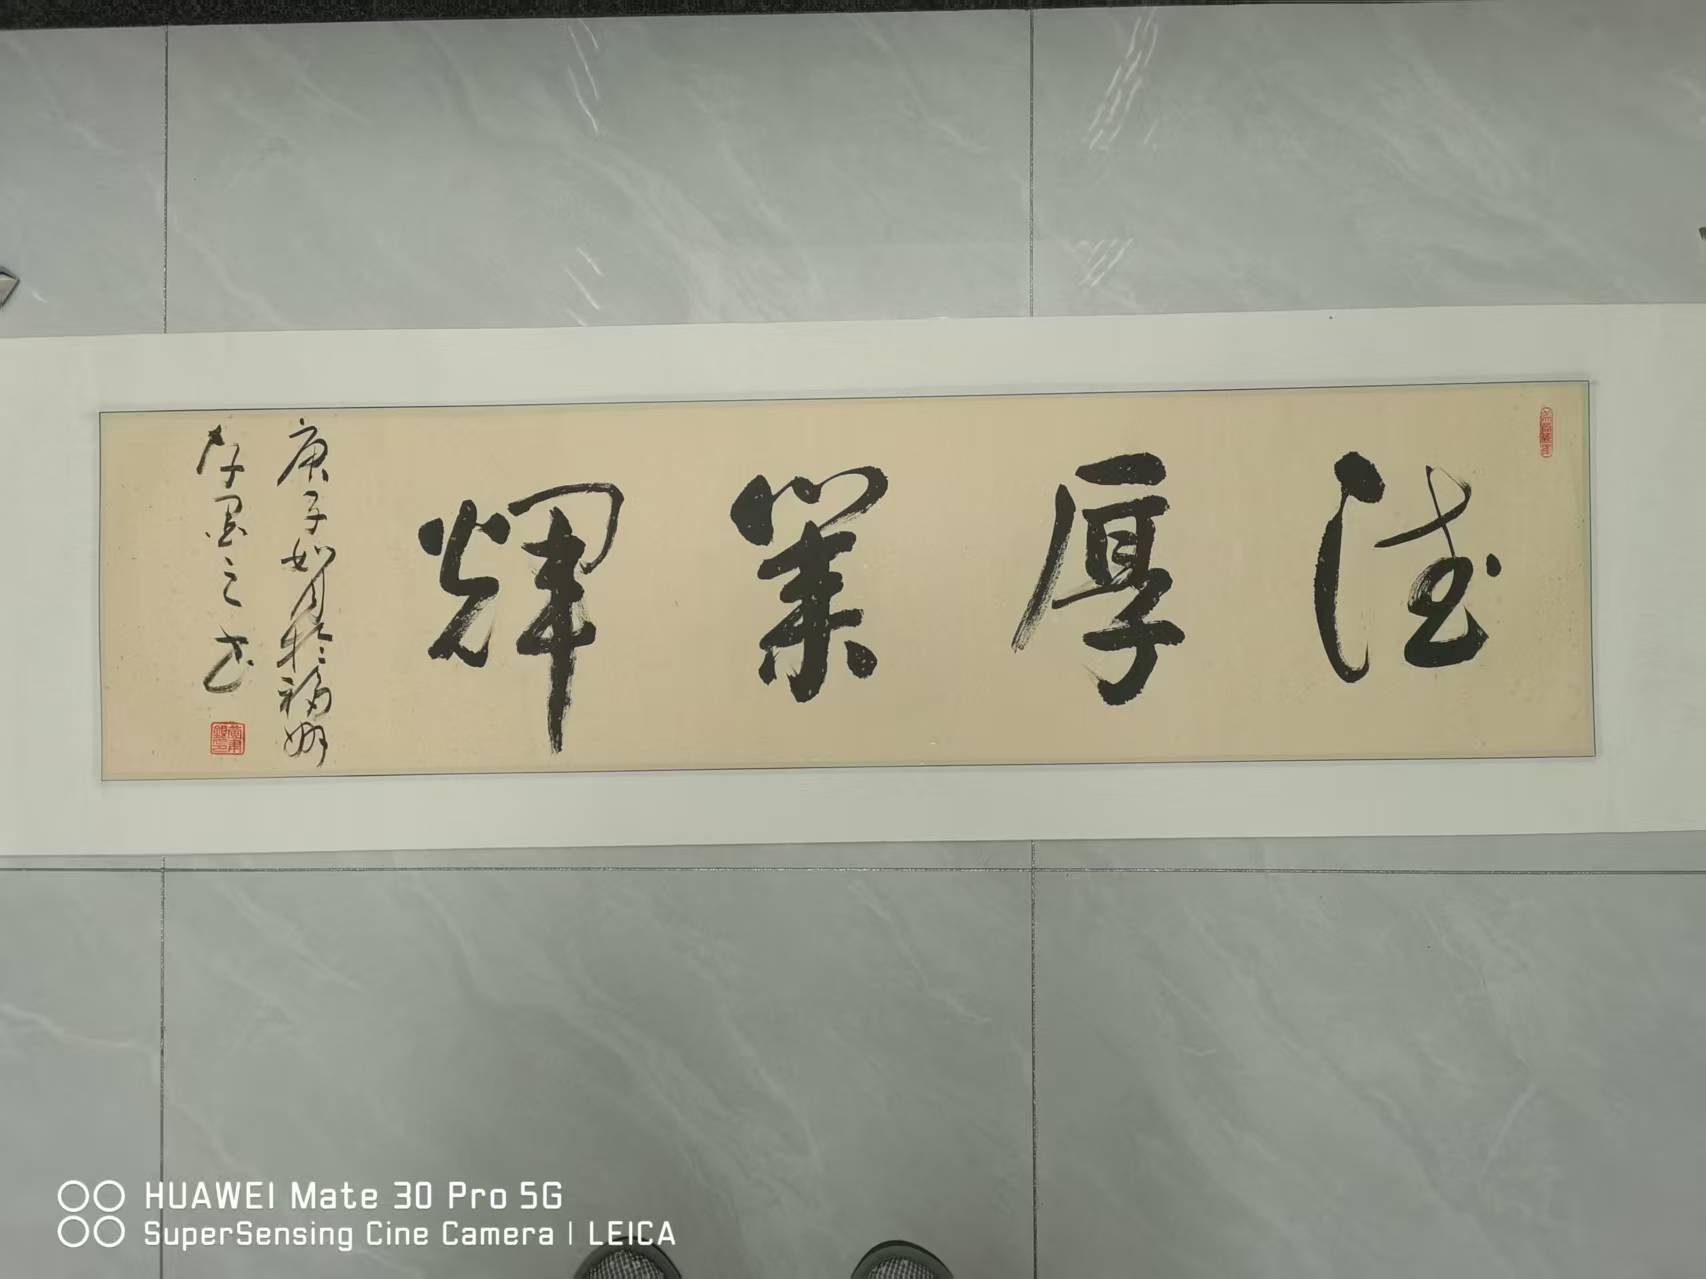 德厚業輝
庚子如月於福州
之書
HUAWEI Mate 30 Pro 5G
SuperSensing Cine Camera | LEICA